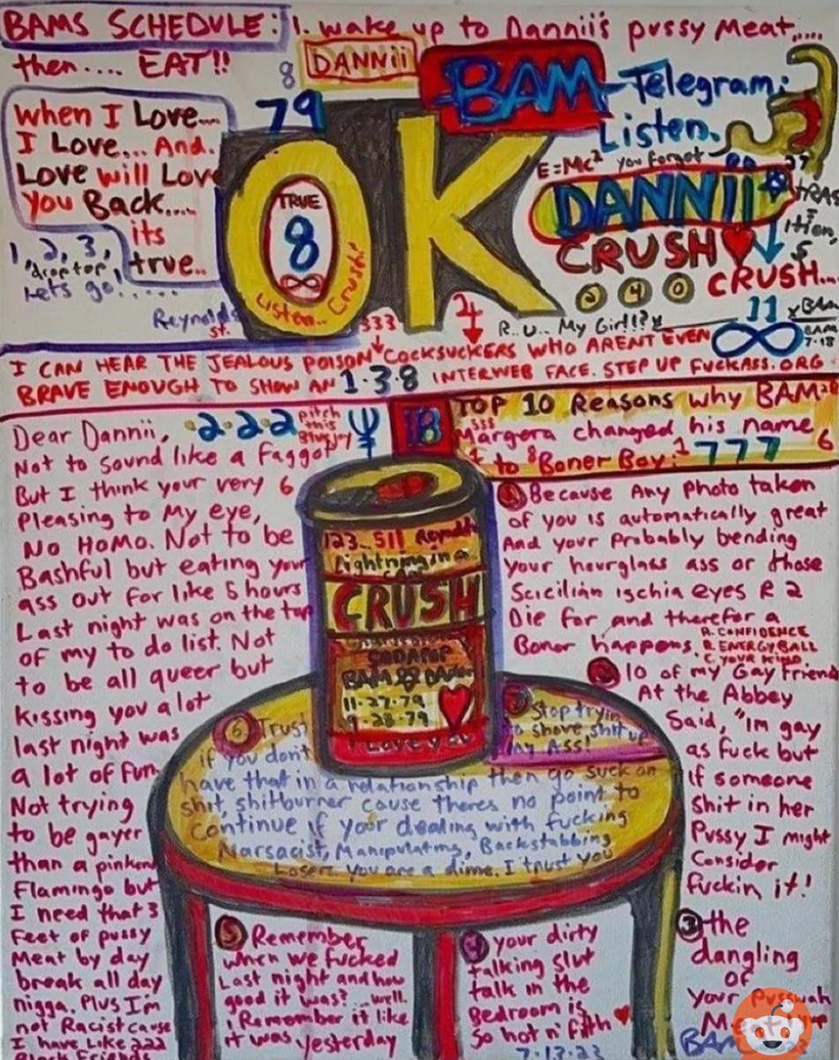 BAMS SCHEDULE: 1. wake up to Dannii's pussy Meat.....
then.... EAT!!
8
DANNii
79
BAM
Telegram:
Listen.
When I Love...
I Love... And.
Love will Love
you Back....
its
true..
1, 2, 3,
droptop
Lets go!.....
Reynolds
st.
OK
TRUE
8
∞
Listen.. Crush!
E=Mc²
you forgot
DANNII
CRUSH ♥
CRUSH...
2 4 0
11
∞
BAM
7-18
333
R..U.. My Girl!?
I CAN HEAR THE JEALOUS POISON COCKSUCKERS WHO ARENT EVEN
BRAVE ENOUGH TO SHOW AN 1·3·8 INTERWEB FACE. STEP UP FUCKASS.ORG
Dear Dannii, 2-2-2
pitch
this
Not to sound like a faggot
But I think your very 6
Pleasing to My eye,
No Homo. Not to be
Bashful but eating your
ass out for like 5 hours
Last night was on the top
of my to do list. Not
to be all queer but
kissing you a lot
last night was
a lot of fun
Not trying
to be gayer
than a pinkend
Flamingo but
I need that 3
Feet of pussy
Meat by day
break all day
nigga, Plus I'm
not Racist cause
I have Like 222
Black Friends
18
TOP 10 Reasons why BAM
$$$
Margera changed his name
to Boner Boy: 777 6
1 Because Any Photo taken
of you is automatically great
And your Probably bending
your hourglass ass or those
Scicilian ischia eyes R 2
Die for and therefor a
Boner happens.
A. CONFIDENCE
B. ENERGY BALL
C. YOUR MIND
2 10 of my Gay friends
At the Abbey
Said, "Im gay
as fuck but
if someone
shit in her
Pussy I might
Consider
fuckin it!
3 the
dangling
of
your
123..511
Lightning in a
CRUSH
SODAPOP
BAM
11-27-79
9-28-79
I Love you
7 Stop tryin
to shove shit up
my Ass!
6 Trust
if you don't
have that in a relationship then go suck an
shit, shitburner cause theres no point to
Continue if your dealing with fucking
Narsacist, Manipulating, Backstabbing
Losers you are a dime. I trust you
5 Remember
when we fucked
Last night and how
good it was?...well.
I Remember it like
it was yesterday
4 your dirty
talking slut
talk in the
Bedroom is
So hot n' filth ♥
7-13-23
BAM